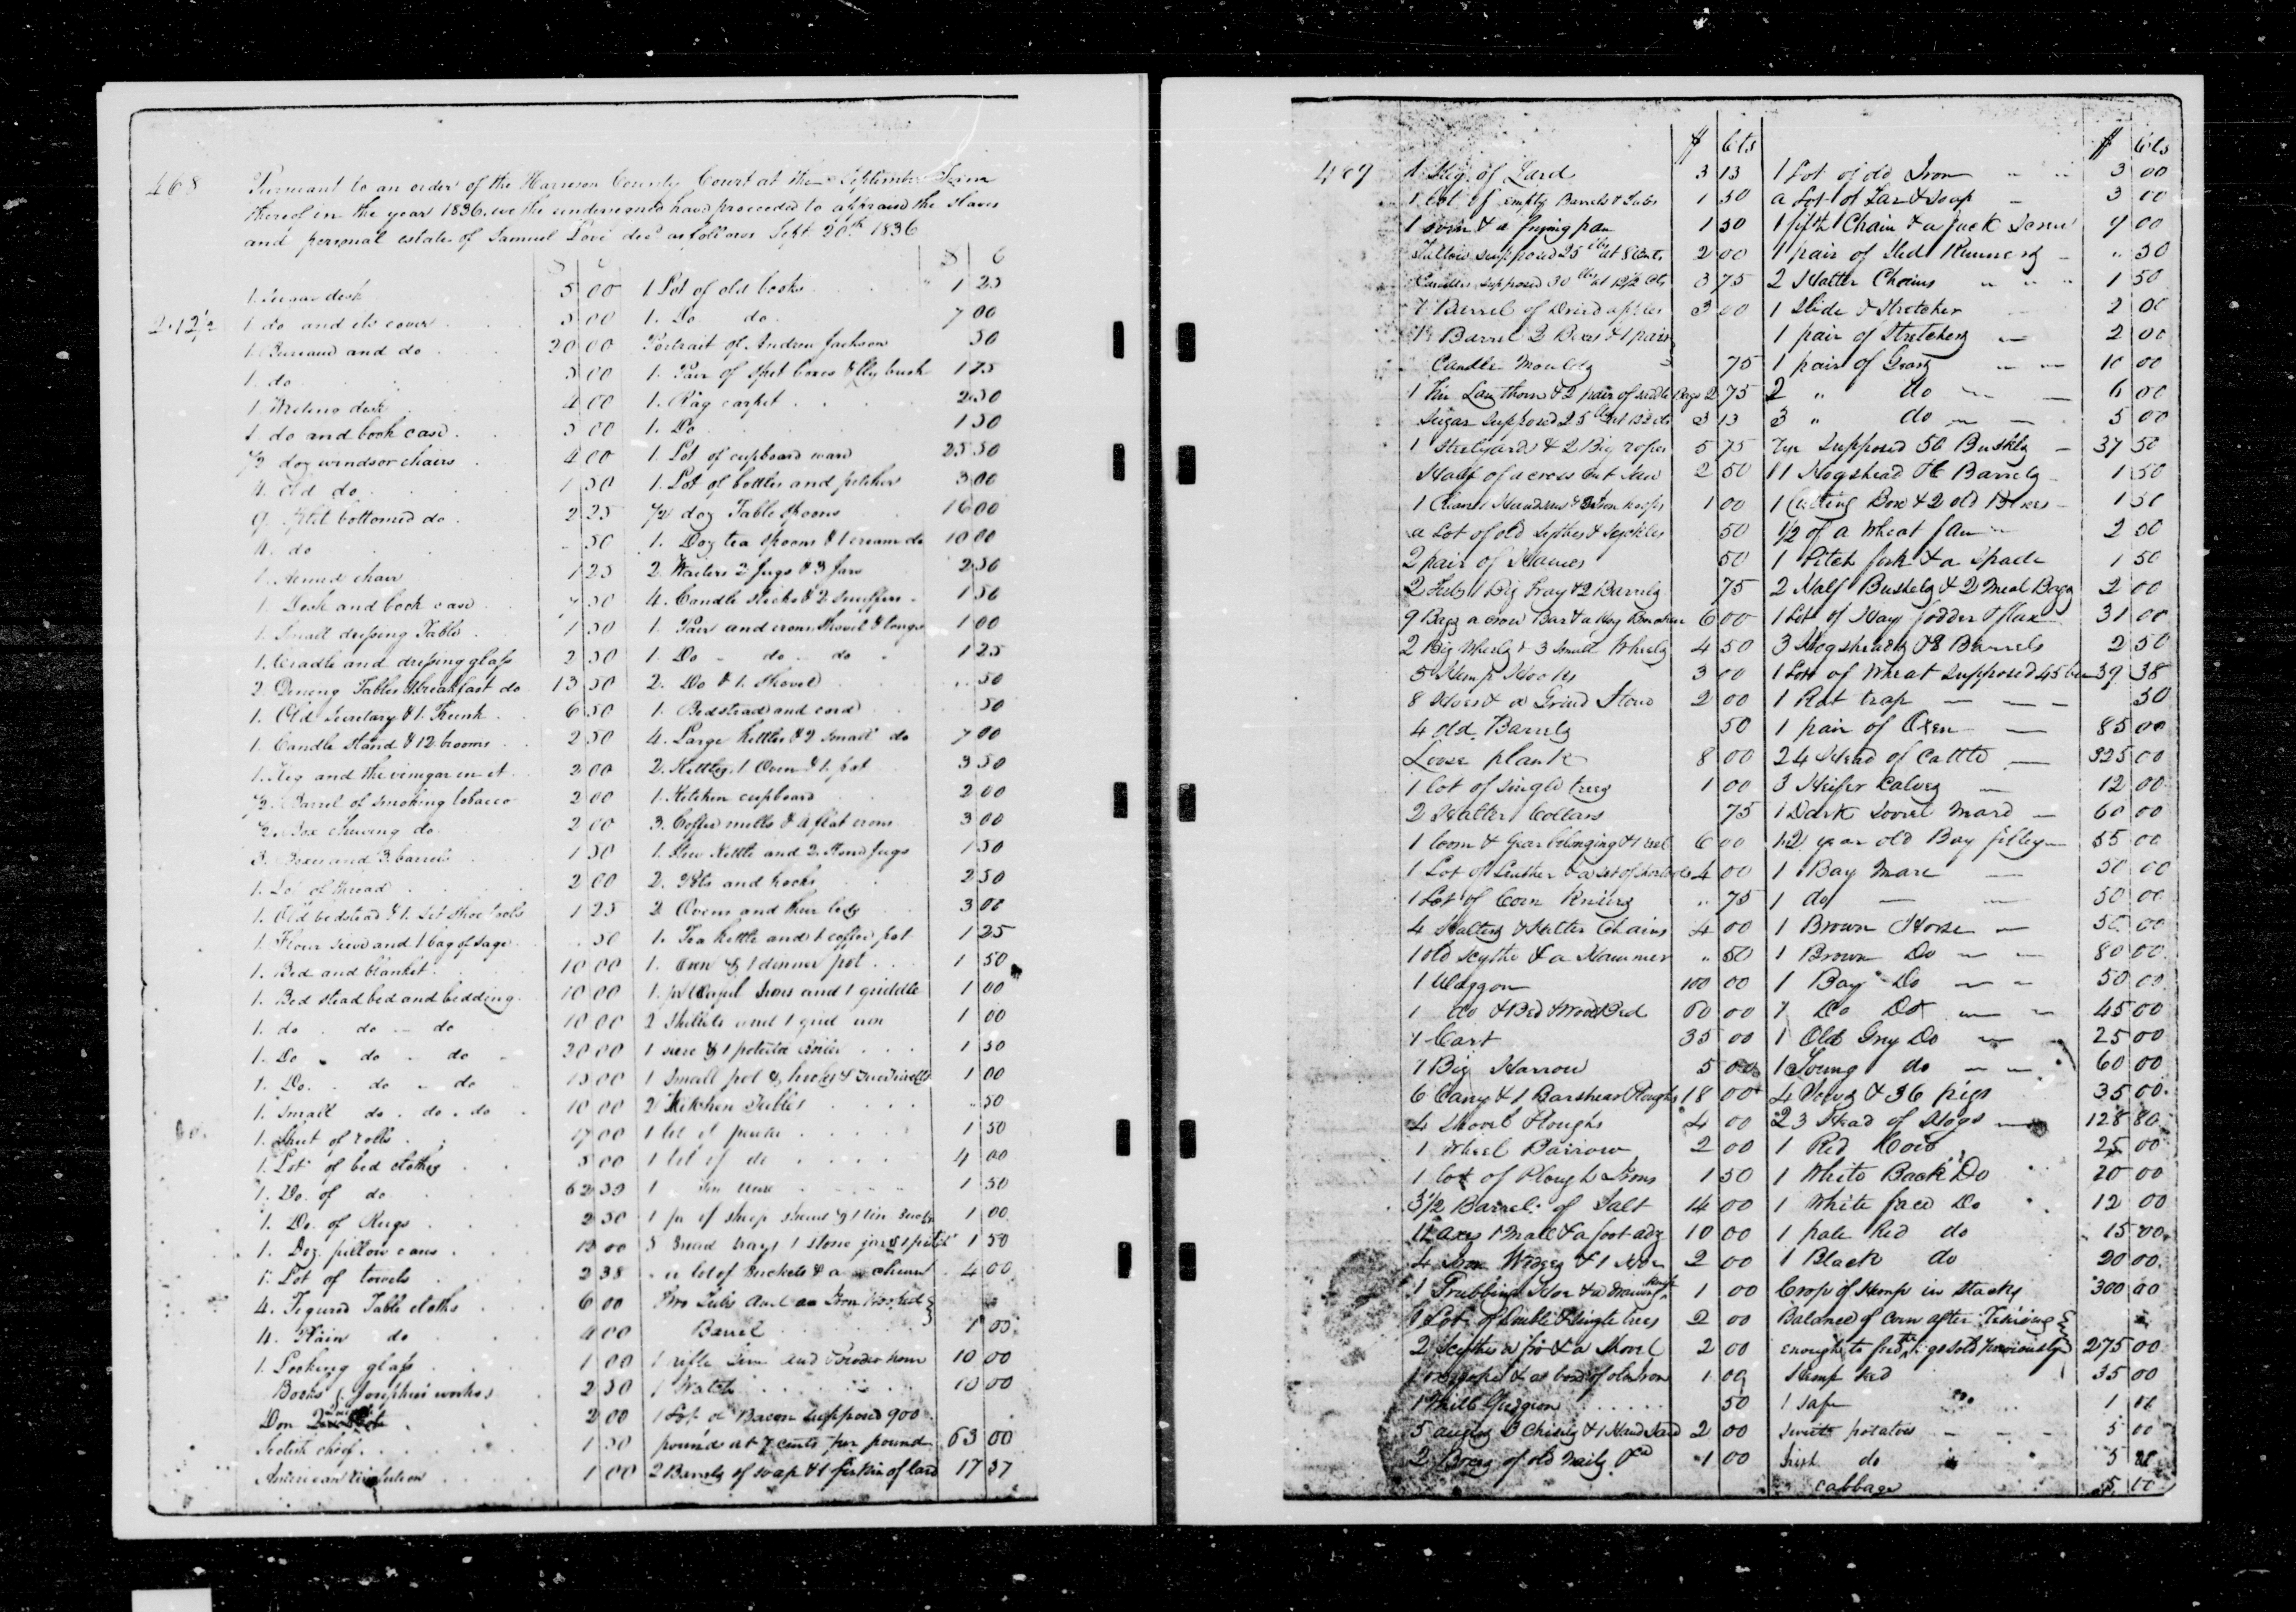 468
Pursuant to an order of the Harrison County Court at the September Term
thereof in the year 1836. we the undersigned have proceeded to appraise the slaves
and personal estate of Samuel Love decd as follows Sept. 20th 1836
$ c
1. Sugar desk 5 00
2.12½
1 do and its cover 5 00
1. Bureau and do 20 00
1. do 5 00
1. Writing desk 4 00
1 do and book case 5 00
½ doz windsor chairs 4 00
4. Old do 1 50
9. Split bottomed do 2 25
4. do 50
1. Armed chair 1 25
1. Desk and book case 7 50
1. Small dressing Table 1 50
1. Cradle and dressing glass 2 50
2 Dining Tables & breakfast do 13 50
1. Old Secretary & 1. Trunk 6 50
1. Candle stand & 12 brooms 2 50
1. Keg and the vinegar in it 2 00
½. Barrel of smoking tobacco 2 00
½. Box chewing do 2 00
3. Boxes and 3. barrels 1 50
1. Lot of thread 2 00
1. Old bedstead & 1. Set shoe tools 1 25
1. Flour sieve and 1 bag of sage 50
1. Bed and blanket 10 00
1. Bed stead bed and bedding 10 00
1. do do do 10 00
1. Do do do 20 00
1. Do. do do 15 00
1. Small do. do. do 10 00
1. Sheet of rolls 17 00
1. Lot of bed clothes 5 00
1. Do. of do 62 39
1. Do. of Rugs 2 50
1. Doz. pillow cases 12 00
1. Lot of towels 2 38
4. Figured Table cloths 6 00
4. Plain do 4 00
1. Looking glass 1 00
Books (Josephus works) 2 50
Don 2 00
Scotish chief 1 50
American revolution 1 00
$ c
1 Lot of old books 1 25
1. Do do. 7 00
Portrait of Andrew Jackson 50
1. Pair of spit boxes & fly brush 1 75
1. Rag carpet 2 50
1. Do 1 50
1. Lot of cupboard ware 25 50
1. Lot of bottles and pitcher 3 00
½ doz Table spoons 16 00
1. Doz tea spoons & 1 cream do 10 00
2. Waiters 2 jugs & 3 jars 2 50
4. Candle sticks & 2 snuffers 1 50
1. Pair and irons shovel & tongs 1 00
1. Do do do 1 25
2. Do & 1. shovel 50
1. Bedstead and cord 50
4. Large kettles & 2 small do 7 00
2. Kettles, 1 Oven & 1. pot 3 50
1. Kitchen cupboard 2 00
3. Coffee mills & 4 flat irons 3 00
1. Stew Kettle and 2. Stone jugs 1 50
2. Pots and hooks 2 50
2 Ovens and their leds 3 00
1. Tea kettle and 1 coffee pot 1 25
1. Oven & 1 dinner pot 1 50
1. pr Waful Irons and 1 griddle 1 00
2 skillets and 1 grid iron 1 00
1 sieve & 1 potatoe boiler 1 50
1 small pot & hooks & 1 00
2 Kitchen Tables 50
1 lot of pewter 1 50
1 lot of do 4 00
1 tin ware 1 50
1 pr of sheep shears & 1 tin 1 00
3 bread trays 1 stone jar & 1 pitch 1 50
a lot of buckets & a churn 4 00
two tubs and an Iron Hooped }
Barrel 1 00
1 rifle Gun and Powder horn 10 00
1 Watch 10 00
1 Lot of Bacon supposed 900
pounds at 7 cents per pound 63 00
2 Barrels of soap & 1 firkin of lard 17 37
469
$ Cts
1 Keg of Lard 3 13
1 lot of empty Barrels & Tubs 1 50
1 oven & a frying pan 1 50
Tallow supposed 25 lbs at 8 cents 2 00
Candles supposed 30 lbs at 12½ cts 3 75
1 Barrel of Dried apples 3 00
1 Barrel 2 Boxes & 1 pair
Candle Moulds 75
1 Tin Lanthorn & 2 pair of saddle Bags 2 75
Sugar supposed 25 lbs at 12½ cts 3 13
1 Steelyards & 2 Big ropes 5 75
Half of a cross cut saw 2 50
1 Chisel Handrus & Iron hoops 1 00
a Lot of old Scythes & Syckles 50
2 pair of Hames 50
2 Tubs 1 Big Tray & 2 Barrels 75
9 Bags a crow Bar & a Hay Breaker 6 00
2 Big Wheels & 3 small Wheels 4 50
5 Hemp Hooks 3 00
8 Hoes & a Grind Stone 2 00
4 old Barrels 50
Loose plank 8 00
1 lot of single trees 1 00
2 Halter Collars 75
1 loom & gear belonging & 1 reel 6 00
1 Lot of Leather & a set of 4 00
1 Lot of Corn Knives 75
4 Halters & Halter Chains 4 00
1 old scythe & a Hammer 50
1 Waggon 100 00
1 do & Bed & Wood Bed 60 00
1 Cart 35 00
1 Big Harrow 5 00
6 Cary & 1 Barshear Ploughs 18 00
4 Shovel Ploughs 4 00
1 Wheel Barrow 2 00
1 lot of Plough Irons 1 50
3½ Barrels of Salt 14 00
11 axes 1 mall & a foot adz 10 00
4 Iron Wedges & 1 Hoe 2 00
1 Grubbing Hoe & a Drawing Knife 1 00
1 Lot of Double & Single trees 2 00
2 Scythes a fro & a shovel 2 00
1 & a box of old Iron 1 00
1 Mill Gudgeon 50
5 augers 3 Chisels & 1 Hand saw 2 00
2 Boxes of old Nails &c 1 00
$ Cts
1 Lot of old Iron 3 00
a Lot of Tar & Soap 3 00
1 fifth Chain & a Jack screw 7 00
1 pair of Sled Runners 50
2 Halter Chains 1 50
1 Slide & Stretcher 2 00
1 pair of Stretchers 2 00
1 pair of Gears 10 00
2 " do 6 00
3 " do 5 00
Rye supposed 50 Bushels 37 50
11 Hogshead & 6 Barrels 1 50
1 Cutting Box & 2 old Boxes 1 50
½ of a Wheat fan 2 50
1 Pitch fork & a Spade 1 50
2 Half Bushels & 2 Meal Bags 2 00
1 Lot of Hay fodder & flax 31 00
3 Hogsheads & 8 Barrels 2 50
1 Lot of Wheat supposed 45 bus 39 38
1 Rat trap 50
1 pair of Oxen 85 00
24 Head of Cattle 325 00
3 Heifer Calves 12 00
1 Dark Sorrel Mare 60 00
1 2 year old Bay filley 55 00
1 Bay Mare 50 00
1 do 50 00
1 Brown Horse 50 00
1 Brown Do 80 00
1 Bay Do 50 00
1 Do Do 45 00
1 Old Grey Do 25 00
1 Young do 60 00
4 Sows & 36 pigs 35 00
23 Head of Hogs 128 80
1 Red Cow 25 00
1 White Back Do 20 00
1 White face Do 12 00
1 pale Red do 15 00
1 Black do 20 00
Crop of Hemp in stacks 300 00
Balance of Corn after }
enough to feed the hogs sold previously 275 00
Hemp seed 35 00
1 safe 1 00
sweet potatoes 5 00
Irish do 5 00
cabbage 5 00